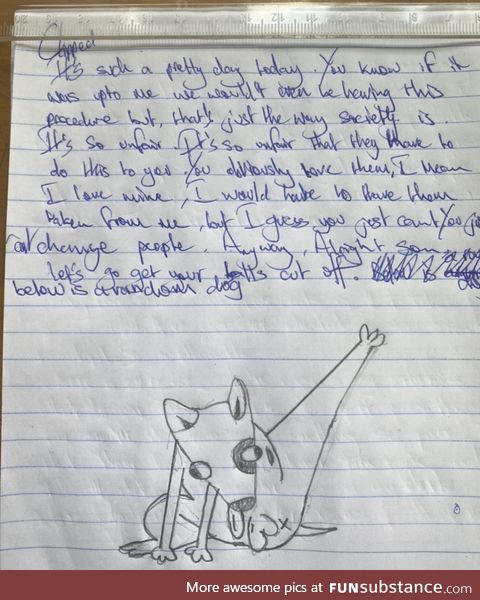 Chopped
It's such a pretty day today. You know if it
was upto me we wouldn't even be having this
procedure but, that's just the way society is.
It's so unfair. It's so unfair that they have to
do this to you. You obviously love them, I mean
I love mine, I would hate to have them
taken from me, but I guess you just can't. You just
can't change people. Anyway, Alright son
let's go get your balls cut off. is
below is a random dog
More awesome pics at FUNsubstance.com